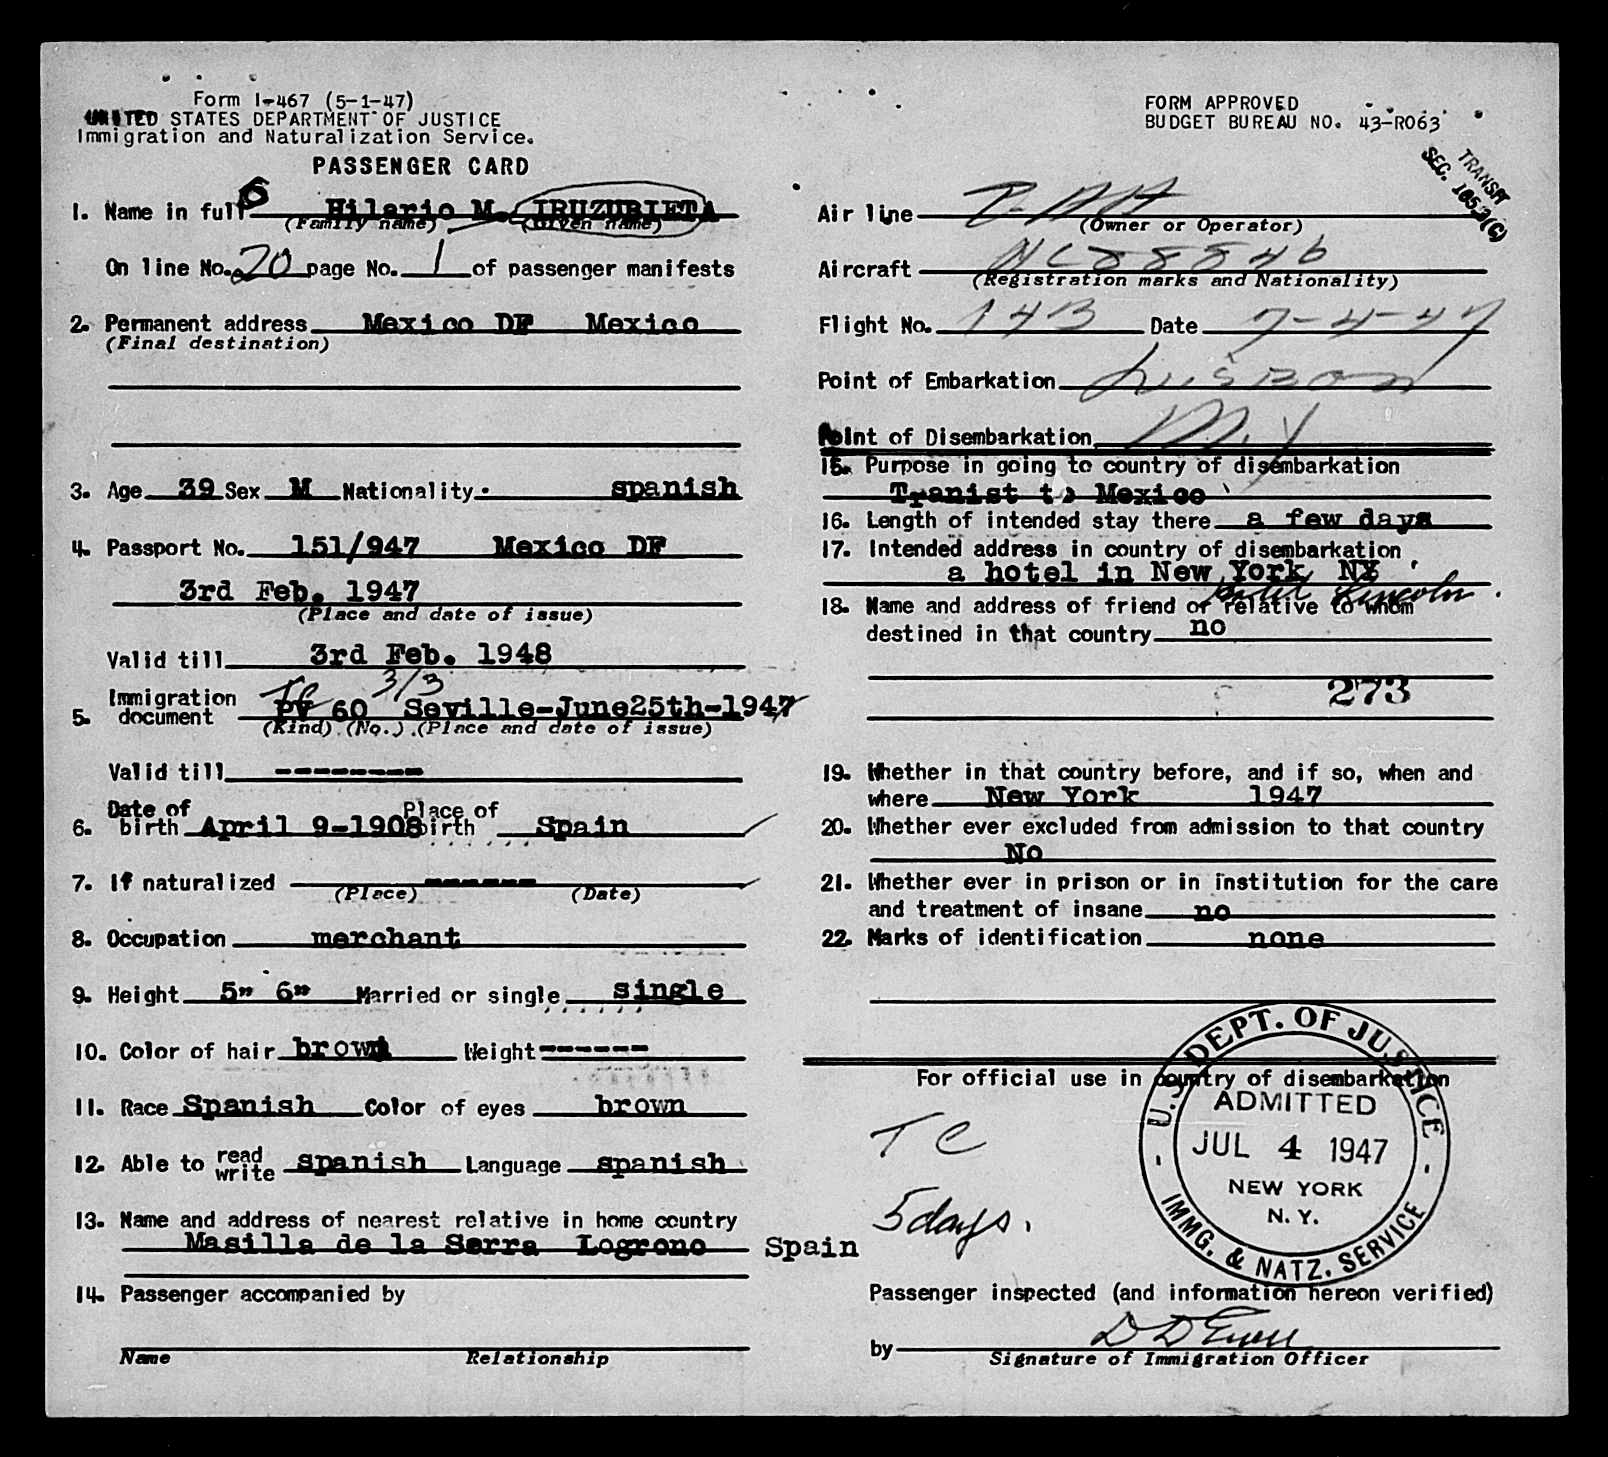 Form I-467 (5-1-47)
UNITED STATES DEPARTMENT OF JUSTICE
Immigration and Naturalization Service.
PASSENGER CARD
FORM APPROVED
BUDGET BUREAU NO. 43-R063
TRANSIT
SEC. 185.3(C)
6
1. Name in full Hilario M. IRUZUBIETA
(Family name) (Given name)
On line No. 20 page No. 1 of passenger manifests
2. Permanent address Mexico DF Mexico
(Final destination)
3. Age 39 Sex M Nationality. spanish
4. Passport No. 151/947 Mexico DF
3rd Feb. 1947
(Place and date of issue)
Valid till 3rd Feb. 1948
TC 3/3
5. Immigration document PV 60 Seville-June25th-1947
(Kind) (No.) (Place and date of issue)
Valid till --------
6. Date of birth April 9-1908 Place of birth Spain
7. If naturalized ------
(Place) (Date)
8. Occupation merchant
9. Height 5" 6" Married or single single
10. Color of hair brown Weight ------
11. Race Spanish Color of eyes brown
12. Able to read write spanish Language spanish
13. Name and address of nearest relative in home country
Masilla de la Serra Logrono Spain
14. Passenger accompanied by
Name Relationship
Air line
(Owner or Operator)
Aircraft NC88846
(Registration marks and Nationality)
Flight No. 143 Date 7-4-47
Point of Embarkation Lisbon
Point of Disembarkation N.Y
15. Purpose in going to country of disembarkation
Tranist to Mexico
16. Length of intended stay there a few days
17. Intended address in country of disembarkation
a hotel in New York NY
Hotel Lincoln.
18. Name and address of friend or relative to whom
destined in that country no
273
19. Whether in that country before, and if so, when and
where New York 1947
20. Whether ever excluded from admission to that country
No
21. Whether ever in prison or in institution for the care
and treatment of insane no
22. Marks of identification none
For official use in country of disembarkation
TC
5 days.
U.S. DEPT. OF JUSTICE
ADMITTED
JUL 4 1947
NEW YORK
N. Y.
IMMG. & NATZ. SERVICE
Passenger inspected (and information hereon verified)
by
Signature of Immigration Officer